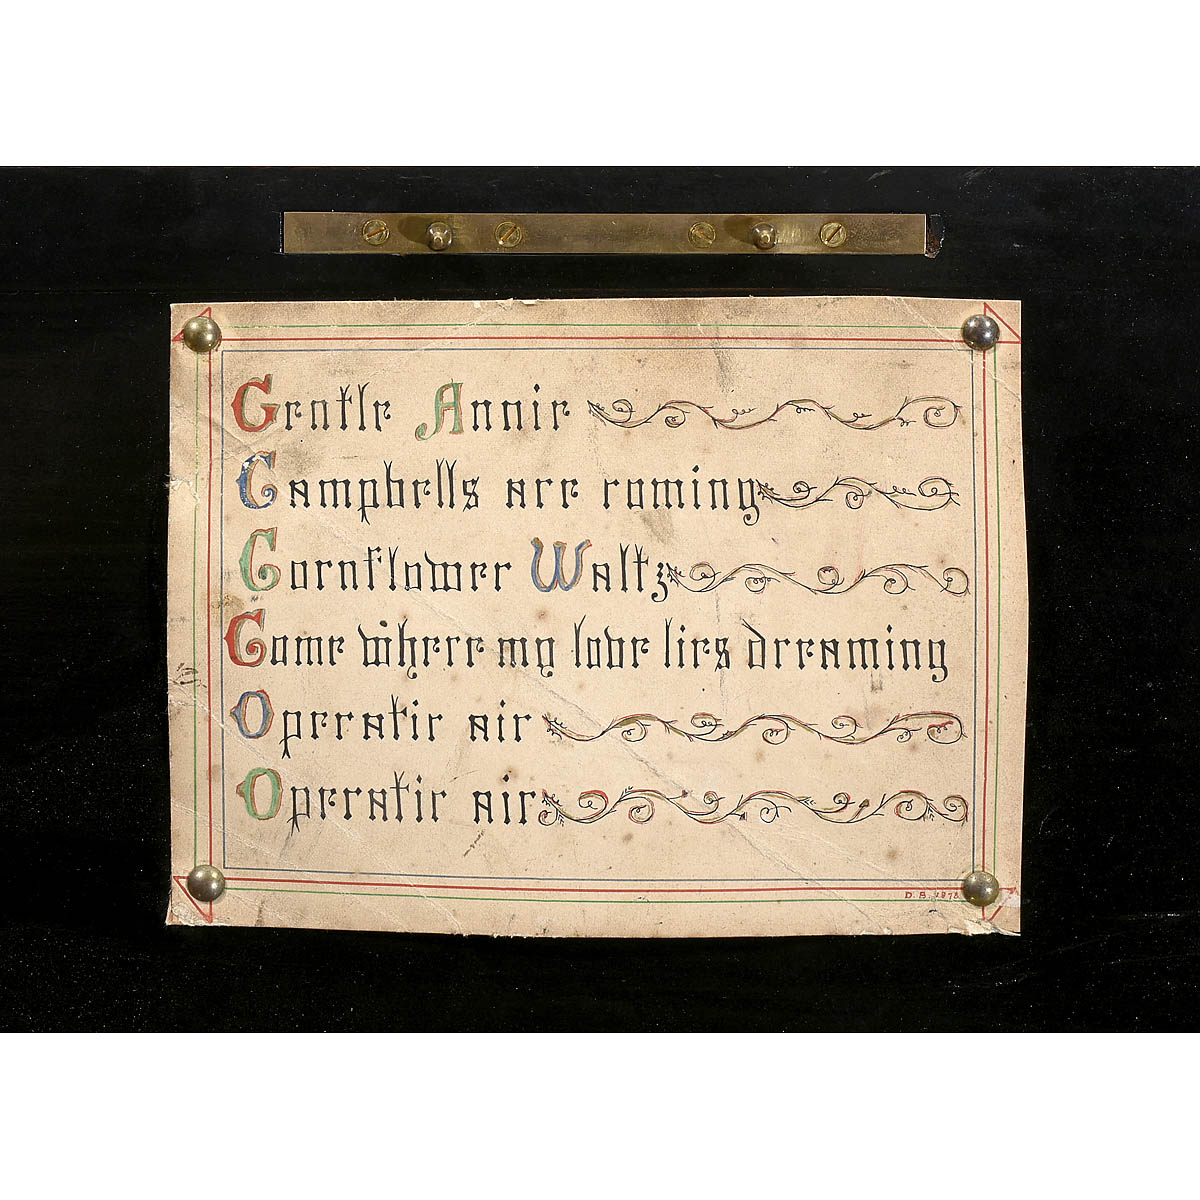 Gentle Annie
Campbells are coming
Cornflower Waltz
Come where my love lies dreaming
Operatic air
Operatic air
D. B. 1978